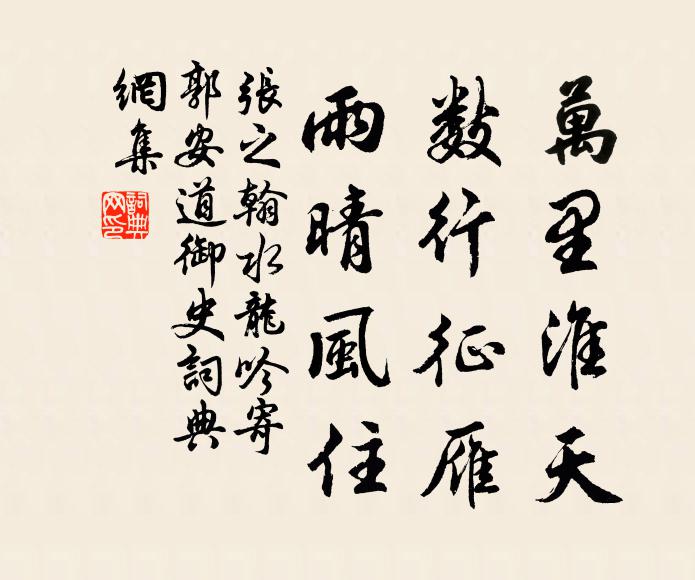 萬里淮天
數行征雁
雨晴風住
張之翰水龍吟寄
郭安道御史詞典
網集
詞典
网印